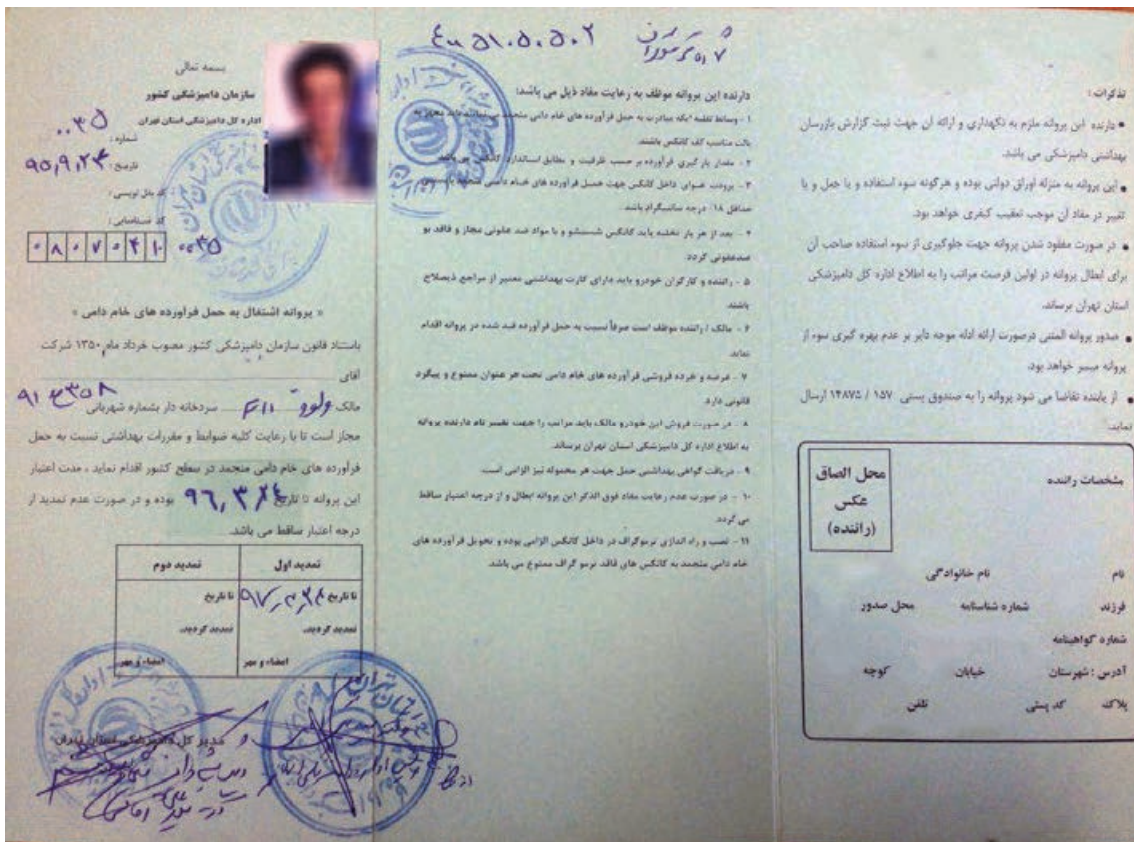 تذکرات :
• دارنده این پروانه ملزم به نگهداری و ارائه آن جهت ثبت گزارش بازرسان
بهداشتی دامپزشکی می باشد.
• این پروانه به منزله اوراق دولتی بوده و هرگونه سوء استفاده و یا جعل و یا
تغییر در مفاد آن موجب تعقیب کیفری خواهد بود.
• در صورت مفقود شدن پروانه جهت جلوگیری از سوء استفاده صاحب آن
برای ابطال پروانه در اولین فرصت مراتب را به اطلاع اداره کل دامپزشکی
استان تهران برساند.
• صدور پروانه المثنی درصورت ارائه ادله موجه دایر بر عدم بهره گیری سوء از
پروانه میسر خواهد بود.
• از یابنده تقاضا می شود پروانه را به صندوق پستی ۱۵۷ / ۱۴۸۷۵ ارسال
نماید.
محل الصاق
عکس
(راننده)
مشخصات راننده
نام نام خانوادگی
فرزند شماره شناسنامه محل صدور
شماره گواهینامه
آدرس : شهرستان خیابان کوچه
پلاک کد پستی تلفن
دارنده این پروانه موظف به رعایت مفاد ذیل می باشد:
۱ - وسائط نقلیه ایکه مبادرت به حمل فرآورده های خام دامی منجمد می نمایند باید مجهز به
پالت مناسب کف کانکس باشند.
۲ - مقدار بار گیری فرآورده بر حسب ظرفیت و مطابق استاندارد کانکس می باشد.
۳ - برودت هوای داخل کانکس جهت حمل فرآورده های خام دامی منجمد
حداقل ۱۸- درجه سانتیگراد باشد.
۴ - بعد از هر بار تخلیه باید کانکس شستشو و با مواد ضد عفونی مجاز و فاقد بو
ضدعفونی گردد
۵ - راننده و کارگران خودرو باید دارای کارت بهداشتی معتبر از مراجع ذیصلاح
باشند.
۶ - مالک / راننده موظف است صرفاً نسبت به حمل فرآورده قید شده در پروانه اقدام
نماید.
۷ - عرضه و خرده فروشی فرآورده های خام دامی تحت هر عنوان ممنوع و پیگرد
قانونی دارد.
۸ - در صورت فروش این خودرو مالک باید مراتب را جهت تغییر نام دارنده پروانه
به اطلاع اداره کل دامپزشکی استان تهران برساند.
۹ - دریافت گواهی بهداشتی حمل جهت هر محموله نیز الزامی است.
۱۰ - در صورت عدم رعایت مفاد فوق الذکر این پروانه ابطال و از درجه اعتبار ساقط
می گردد.
۱۱ - نصب و راه اندازی ترموگراف در داخل کانکس الزامی بوده و تحویل فرآورده های
خام دامی منجمد به کانکس های فاقد ترمو گراف ممنوع می باشد.
بسمه تعالی
سازمان دامپزشکی کشور
اداره کل دامپزشکی استان تهران
شماره : ۰۰۳۵
تاریخ : ۹۵,۹,۲۴
کد شناسایی :
۰ ۸ ۰ ۷ ۰ ۴ ۱۰ ۰۰۳۵
« پروانه اشتغال به حمل فرآورده های خام دامی »
باستناد قانون سازمان دامپزشکی کشور مصوب خرداد ماه ۱۳۵۰ شرکت
آقای
مالک ولوو F11 سردخانه دار بشماره شهربانی ۹۱ ع ۳۵۸
مجاز است تا با رعایت کلیه ضوابط و مقررات بهداشتی نسبت به حمل
فرآورده های خام دامی منجمد در سطح کشور اقدام نماید ، مدت اعتبار
این پروانه تا تاریخ ۹۶,۳,۲۴ بوده و در صورت عدم تمدید از
درجه اعتبار ساقط می باشد.
تمدید اول تمدید دوم
تا تاریخ ۹۷,۳,۲۴ تا تاریخ
تمدید گردید. تمدید گردید.
امضاء و مهر امضاء و مهر
مدیر کل دامپزشکی استان تهران